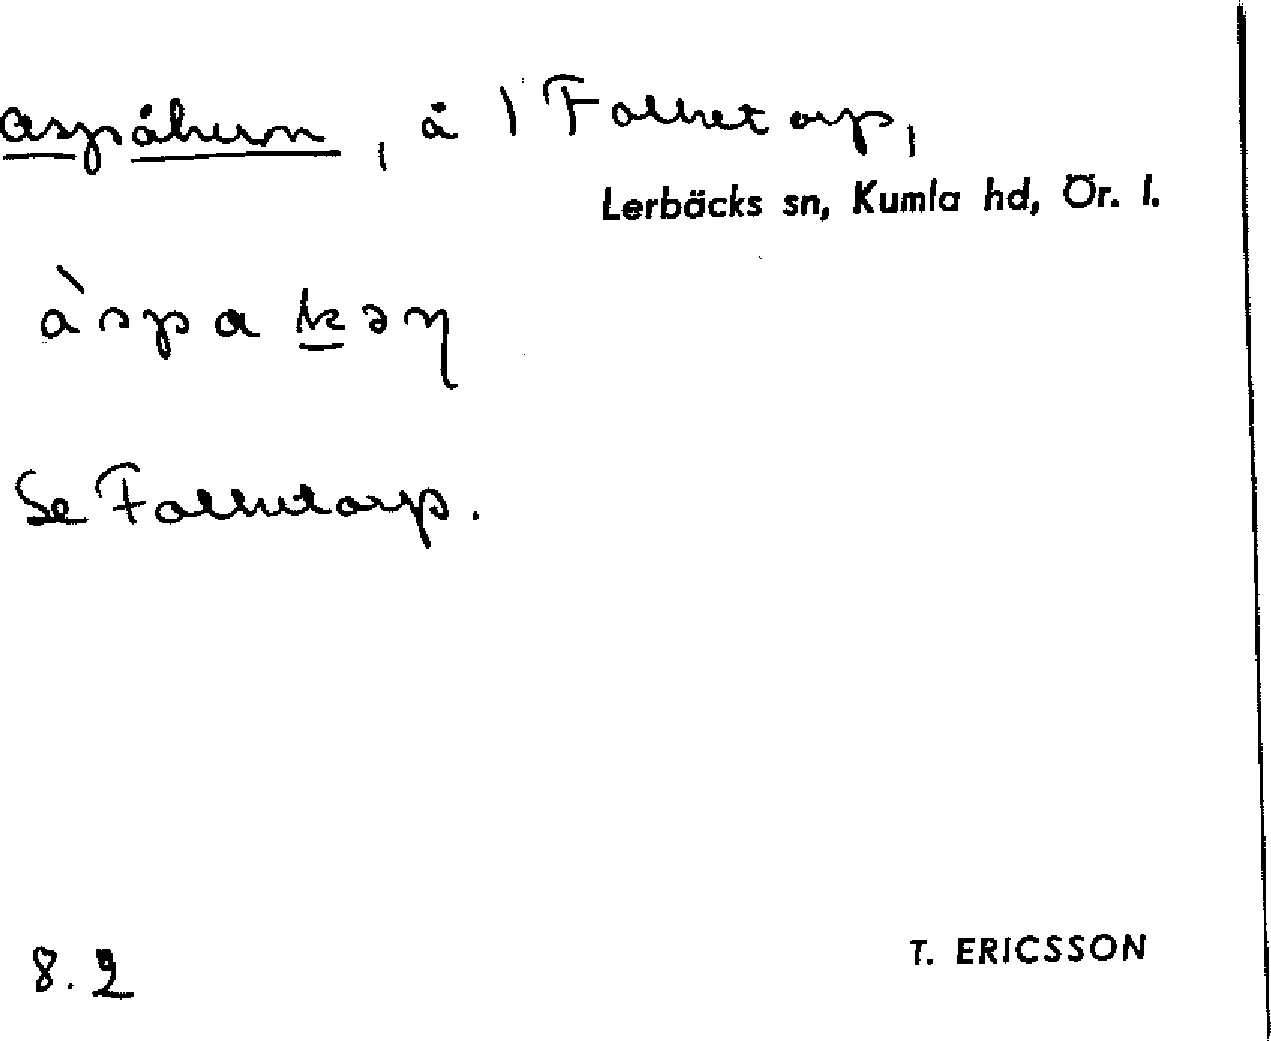 aspåkern, å 1 Folketorp,
Lerbäcks sn, Kumla hd, Ör. l.
àspakəɳ
Se Folketorp.
8.2
T. ERICSSON